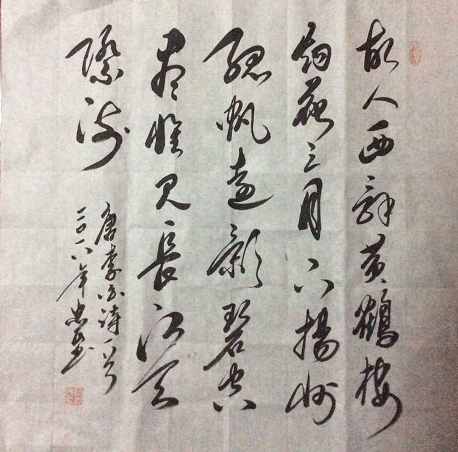 故人西辞黄鶴楼
烟花三月下揚州
孤帆遠影碧空
尽惟见長江天
際流
唐李白诗一首
二〇一八年